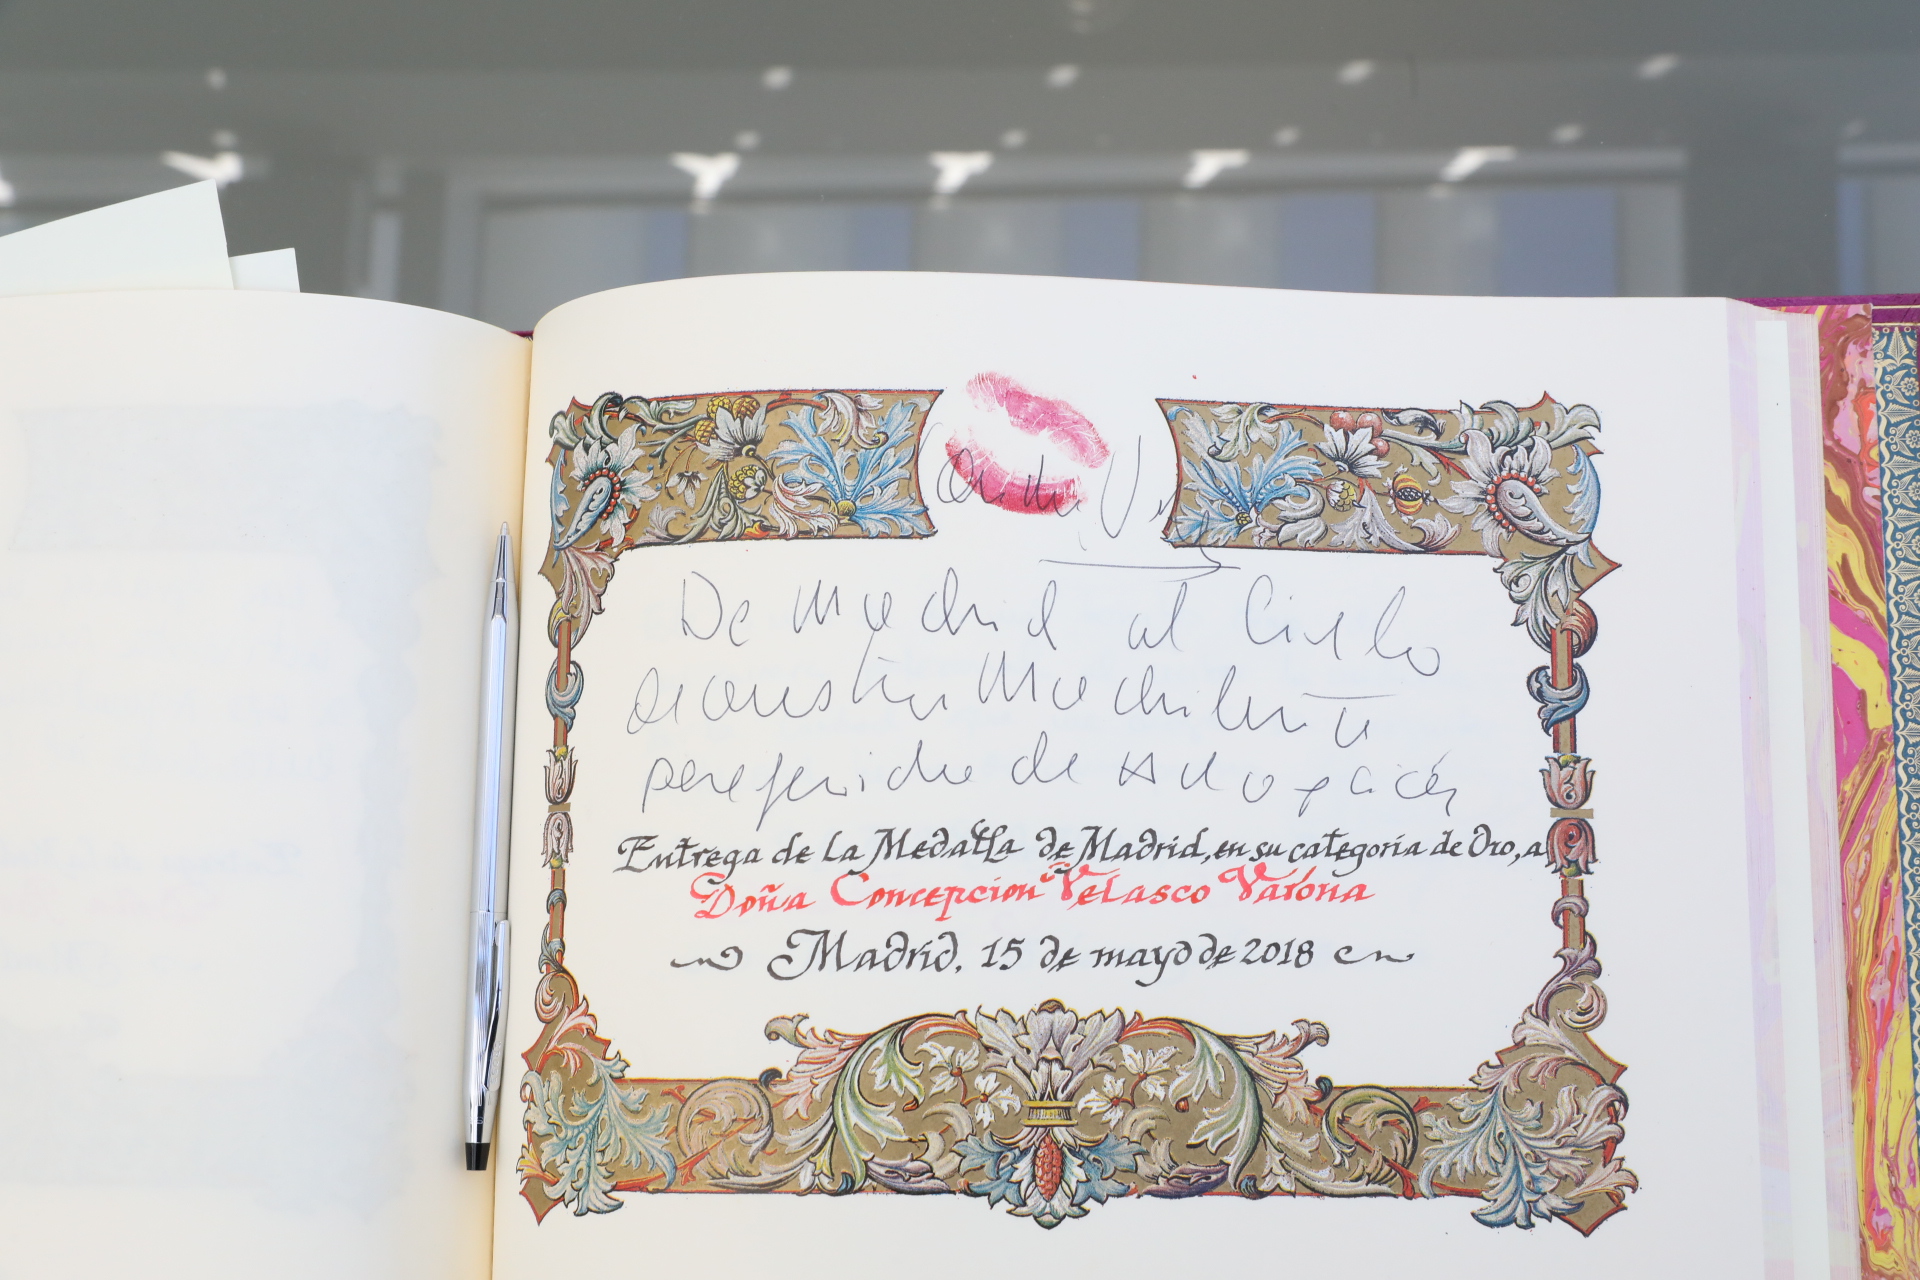 Concha V
De Madrid al Cielo
de vuestra Madrileña
preferida de adopción
Entrega de la Medalla de Madrid, en su categoría de Oro, a
Doña Concepción Velasco Varona
Madrid, 15 de mayo de 2018